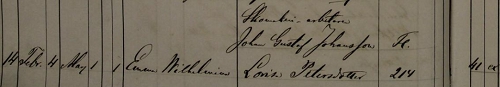 arbetare
John Gustaf Johansson Fr.
14 Febr. 4 Maj 1 1 Emma Wilhelmina Lovisa Petersdotter 214 41